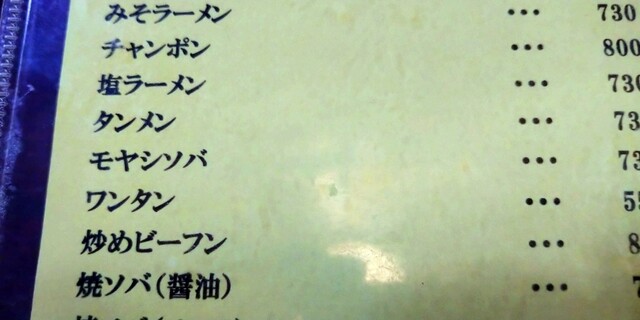 みそラーメン ・・・ 730
チャンポン ・・・ 800
塩ラーメン ・・・ 730
タンメン ・・・ 73
モヤシソバ ・・・ 73
ワンタン ・・・ 55
炒めビーフン ・・・ 8
焼ソバ(醤油) ・・・ 7